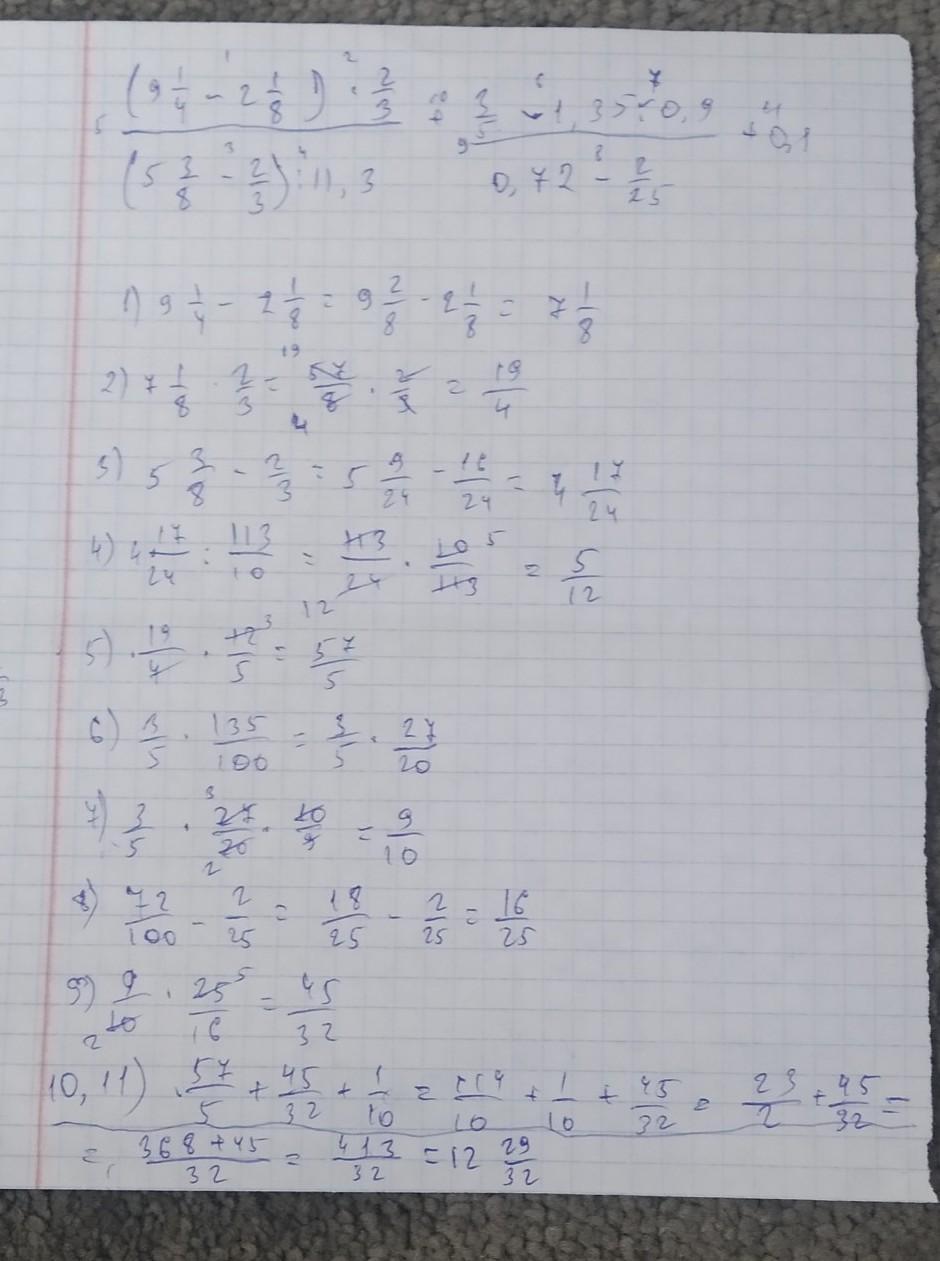 (9 1/4 - 2 1/8) · 2/3 + 3/5 · 1,35 : 0,9 + 0,1
(5 3/8 - 2/3) : 11,3 0,72 - 2/25
1) 9 1/4 - 2 1/8 = 9 2/8 - 2 1/8 = 7 1/8
2) 7 1/8 · 2/3 = 57/8 · 2/3 = 19/4
3) 5 3/8 - 2/3 = 5 9/24 - 16/24 = 4 17/24
4) 4 17/24 : 113/10 = 113/24 · 10/113 = 5/12
5) 19/4 · 12/5 = 57/5
6) 3/5 · 135/100 = 3/5 · 27/20
7) 3/5 · 27/20 · 10/9 = 9/10
8) 72/100 - 2/25 = 18/25 - 2/25 = 16/25
9) 9/10 · 25/16 = 45/32
10, 11) 57/5 + 45/32 + 1/10 = 114/10 + 1/10 + 45/32 = 23/2 + 45/32 =
= 368+45/32 = 413/32 = 12 29/32